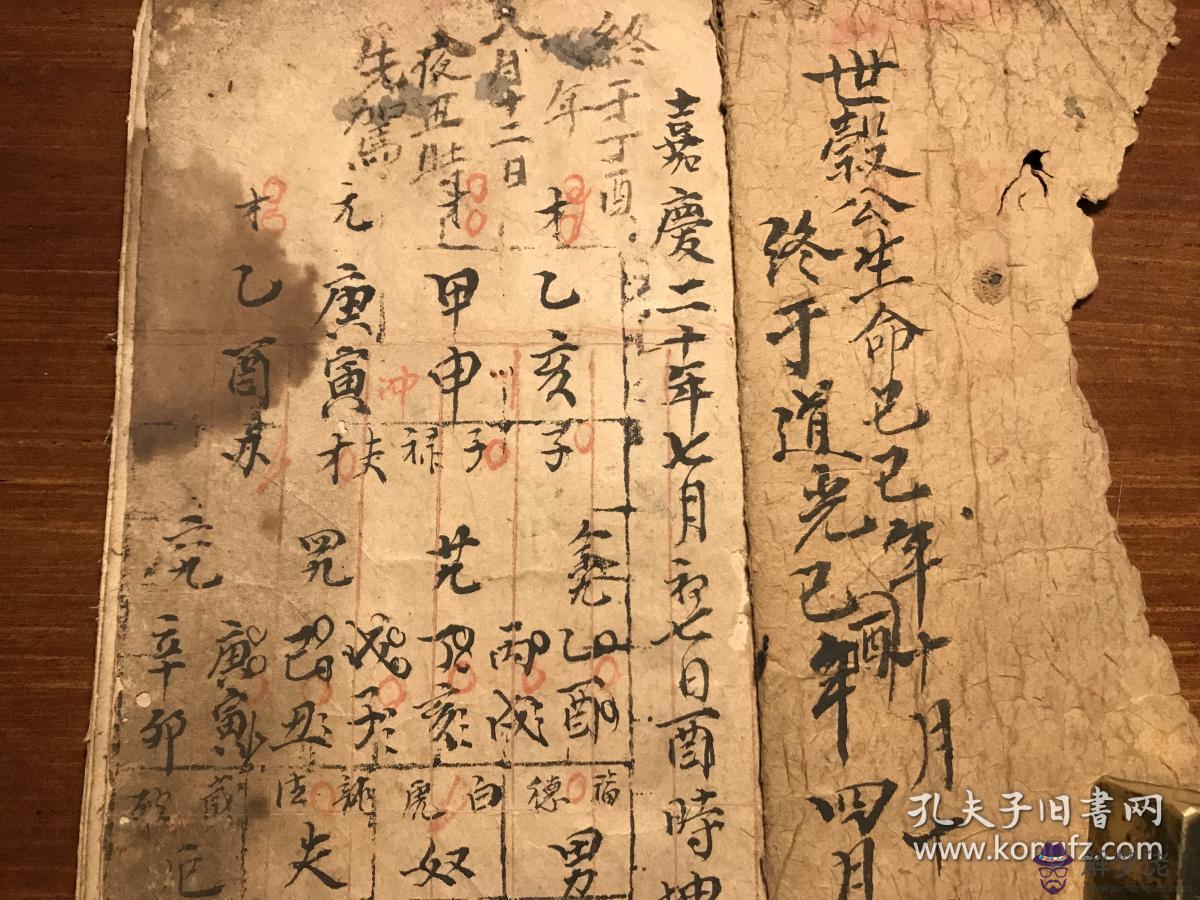 世穀公生命己巳年十月十
酉
終于道光己巳年四月
嘉慶二十年七月初七日酉時坤
終于丁酉
年
八月十二日
夜丑時
先駕
才
才
元
才
乙亥
甲申
庚寅
乙酉
冲
子
子
禄
夫
才
乙酉
丙戌
丁亥
戊子
己丑
庚寅
辛卯
福
德
白
虎
男
奴
夫
孔夫子旧书网
www.kongfz.com